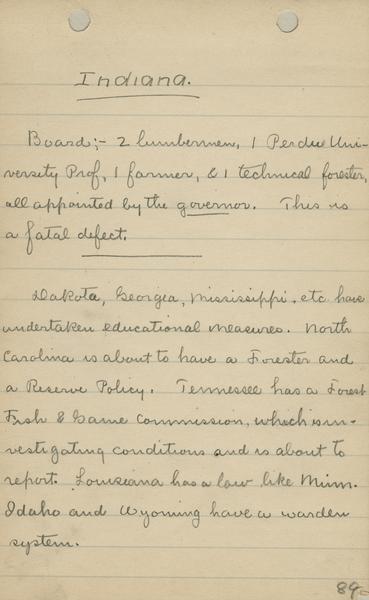 Indiana.
Board:- 2 lumbermen, 1 Perdue Uni-
versity Prof, 1 farmer, & 1 technical forester,
all appointed by the governor. This is
a fatal defect.
Dakota, Georgia, Mississippi, etc have
undertaken educational measures. North
Carolina is about to have a Forester and
a Reserve Policy. Tennessee has a Forest
Fish & Game Commission, which is in-
vestigating conditions and is about to
report. Louisiana has a law like Minn.
Idaho and Wyoming have a warden
system.
89